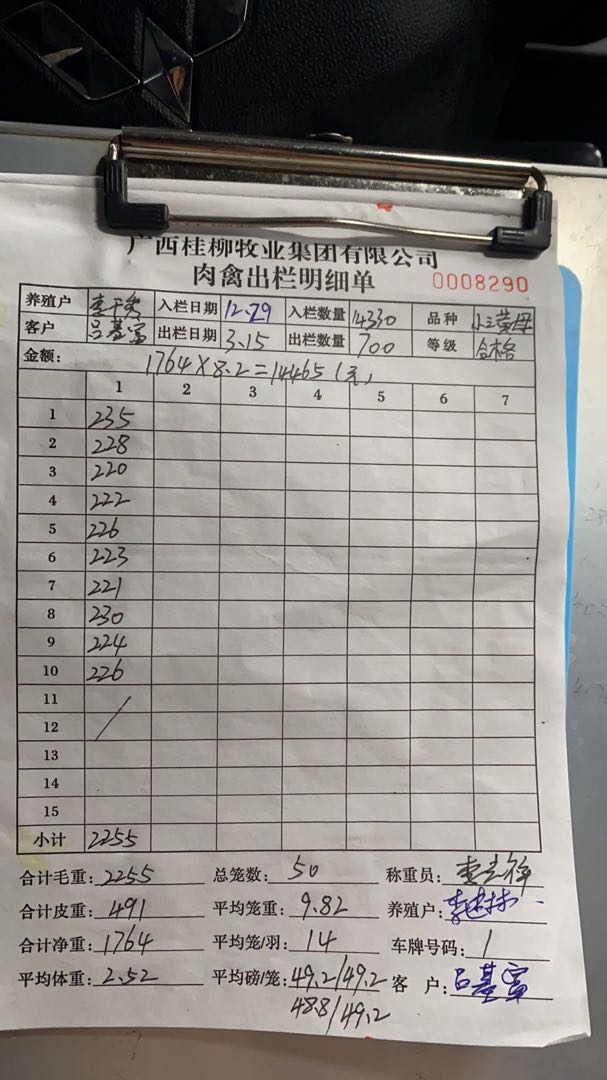 广西桂柳牧业集团有限公司
肉禽出栏明细单 0008290
养殖户 入栏日期 12.29 入栏数量 14330 品种 小三黄母
客户 吕基富 出栏日期 3.15 出栏数量 700 等级 合格
金额: 1764×8.2=14465(元)
1 2 3 4 5 6 7
1 235
2 228
3 220
4 222
5 226
6 223
7 221
8 230
9 224
10 226
11 /
12
13
14
15
小计 2255
合计毛重: 2255 总笼数: 50 称重员:
合计皮重: 491 平均笼重: 9.82 养殖户:
合计净重: 1764 平均笼/羽: 14 车牌号码: /
平均体重: 2.52 平均磅/笼: 49.2/49.2 客 户: 吕基富
48.8/49.2